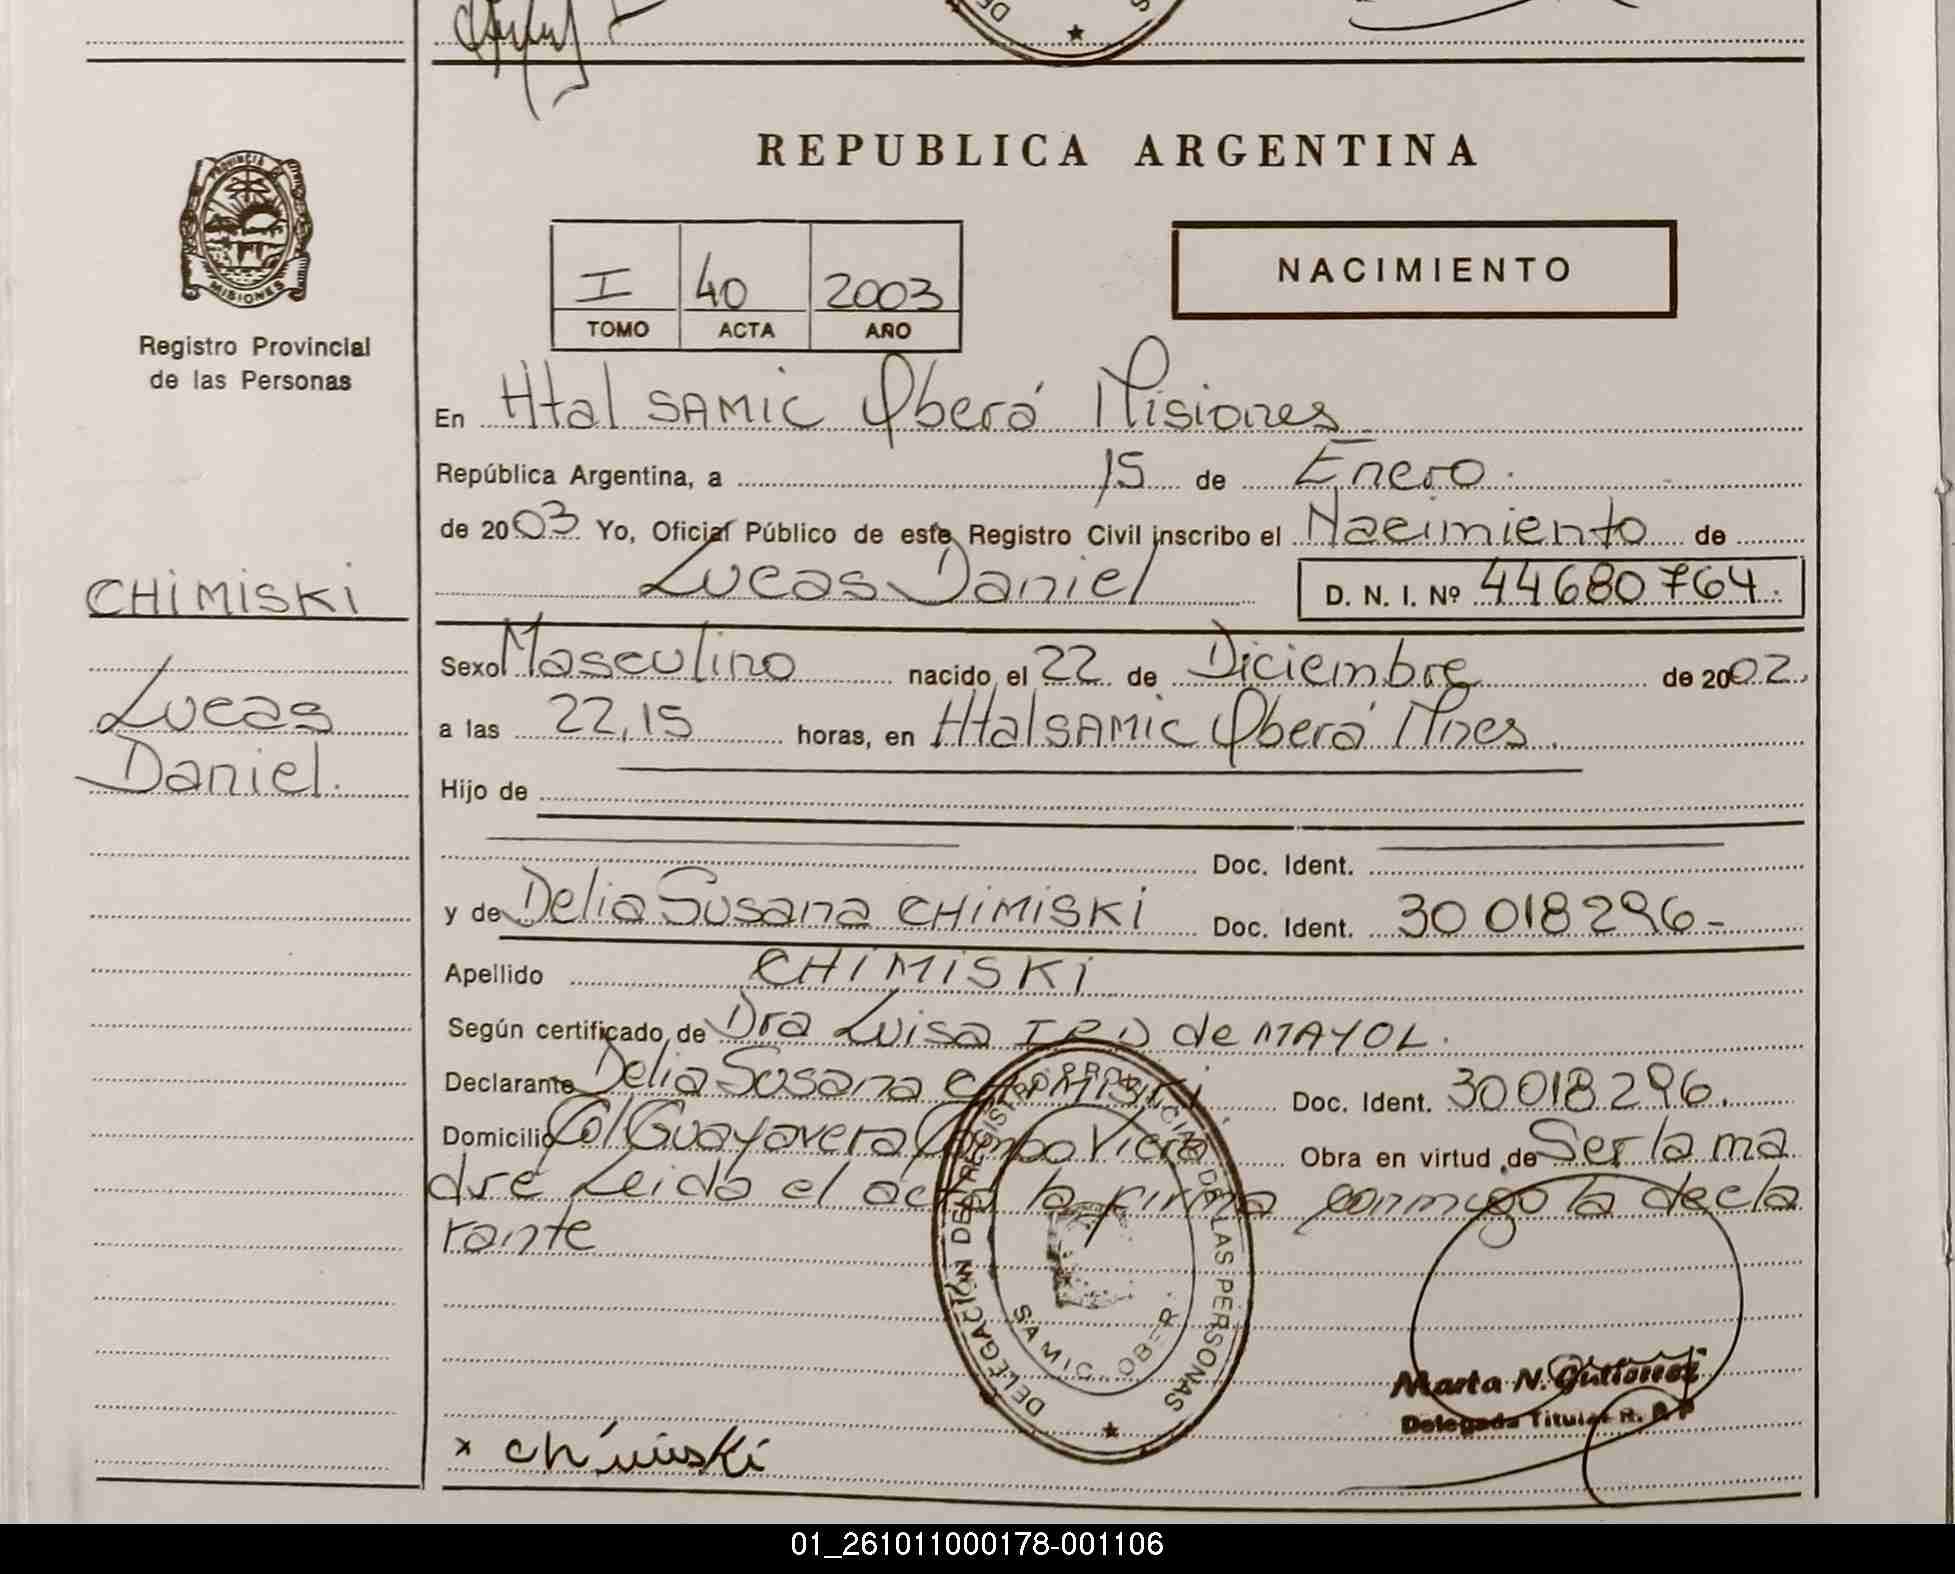 REPUBLICA ARGENTINA
PROVINCIA
MISIONES
Registro Provincial
de las Personas
I 40 2003
TOMO ACTA AÑO
NACIMIENTO
En Htal SAMIC Oberá Misiones
República Argentina, a 15 de Enero.
de 2003 Yo, Oficial Público de este Registro Civil inscribo el Nacimiento de
Lucas Daniel D. N. I. Nº 44680764.
CHiMiSKi
Lucas
Daniel.
Sexo Masculino nacido el 22 de Diciembre de 2002.
a las 22,15 horas, en Htal SAMIC Oberá Mnes.
Hijo de
Doc. Ident.
y de Delia Susana CHiMiSKi Doc. Ident. 30 018296-
Apellido CHiMiSKi
Según certificado de Dra Luisa de MAYOL.
Declarante Delia Susana CHiMiSKi Doc. Ident. 30018296.
Domicilio Col Guayavera Campo Viera Obra en virtud de Ser la ma
dre Leida el acta la firma conmigo la decla
rante
DELEGACIÓN DEL REGISTRO PROVINCIAL DE LAS PERSONAS
SAMIC OBERA
Marta N. Gutierrez
Delegada Titular R. P. P
x chimiski
01_261011000178-001106